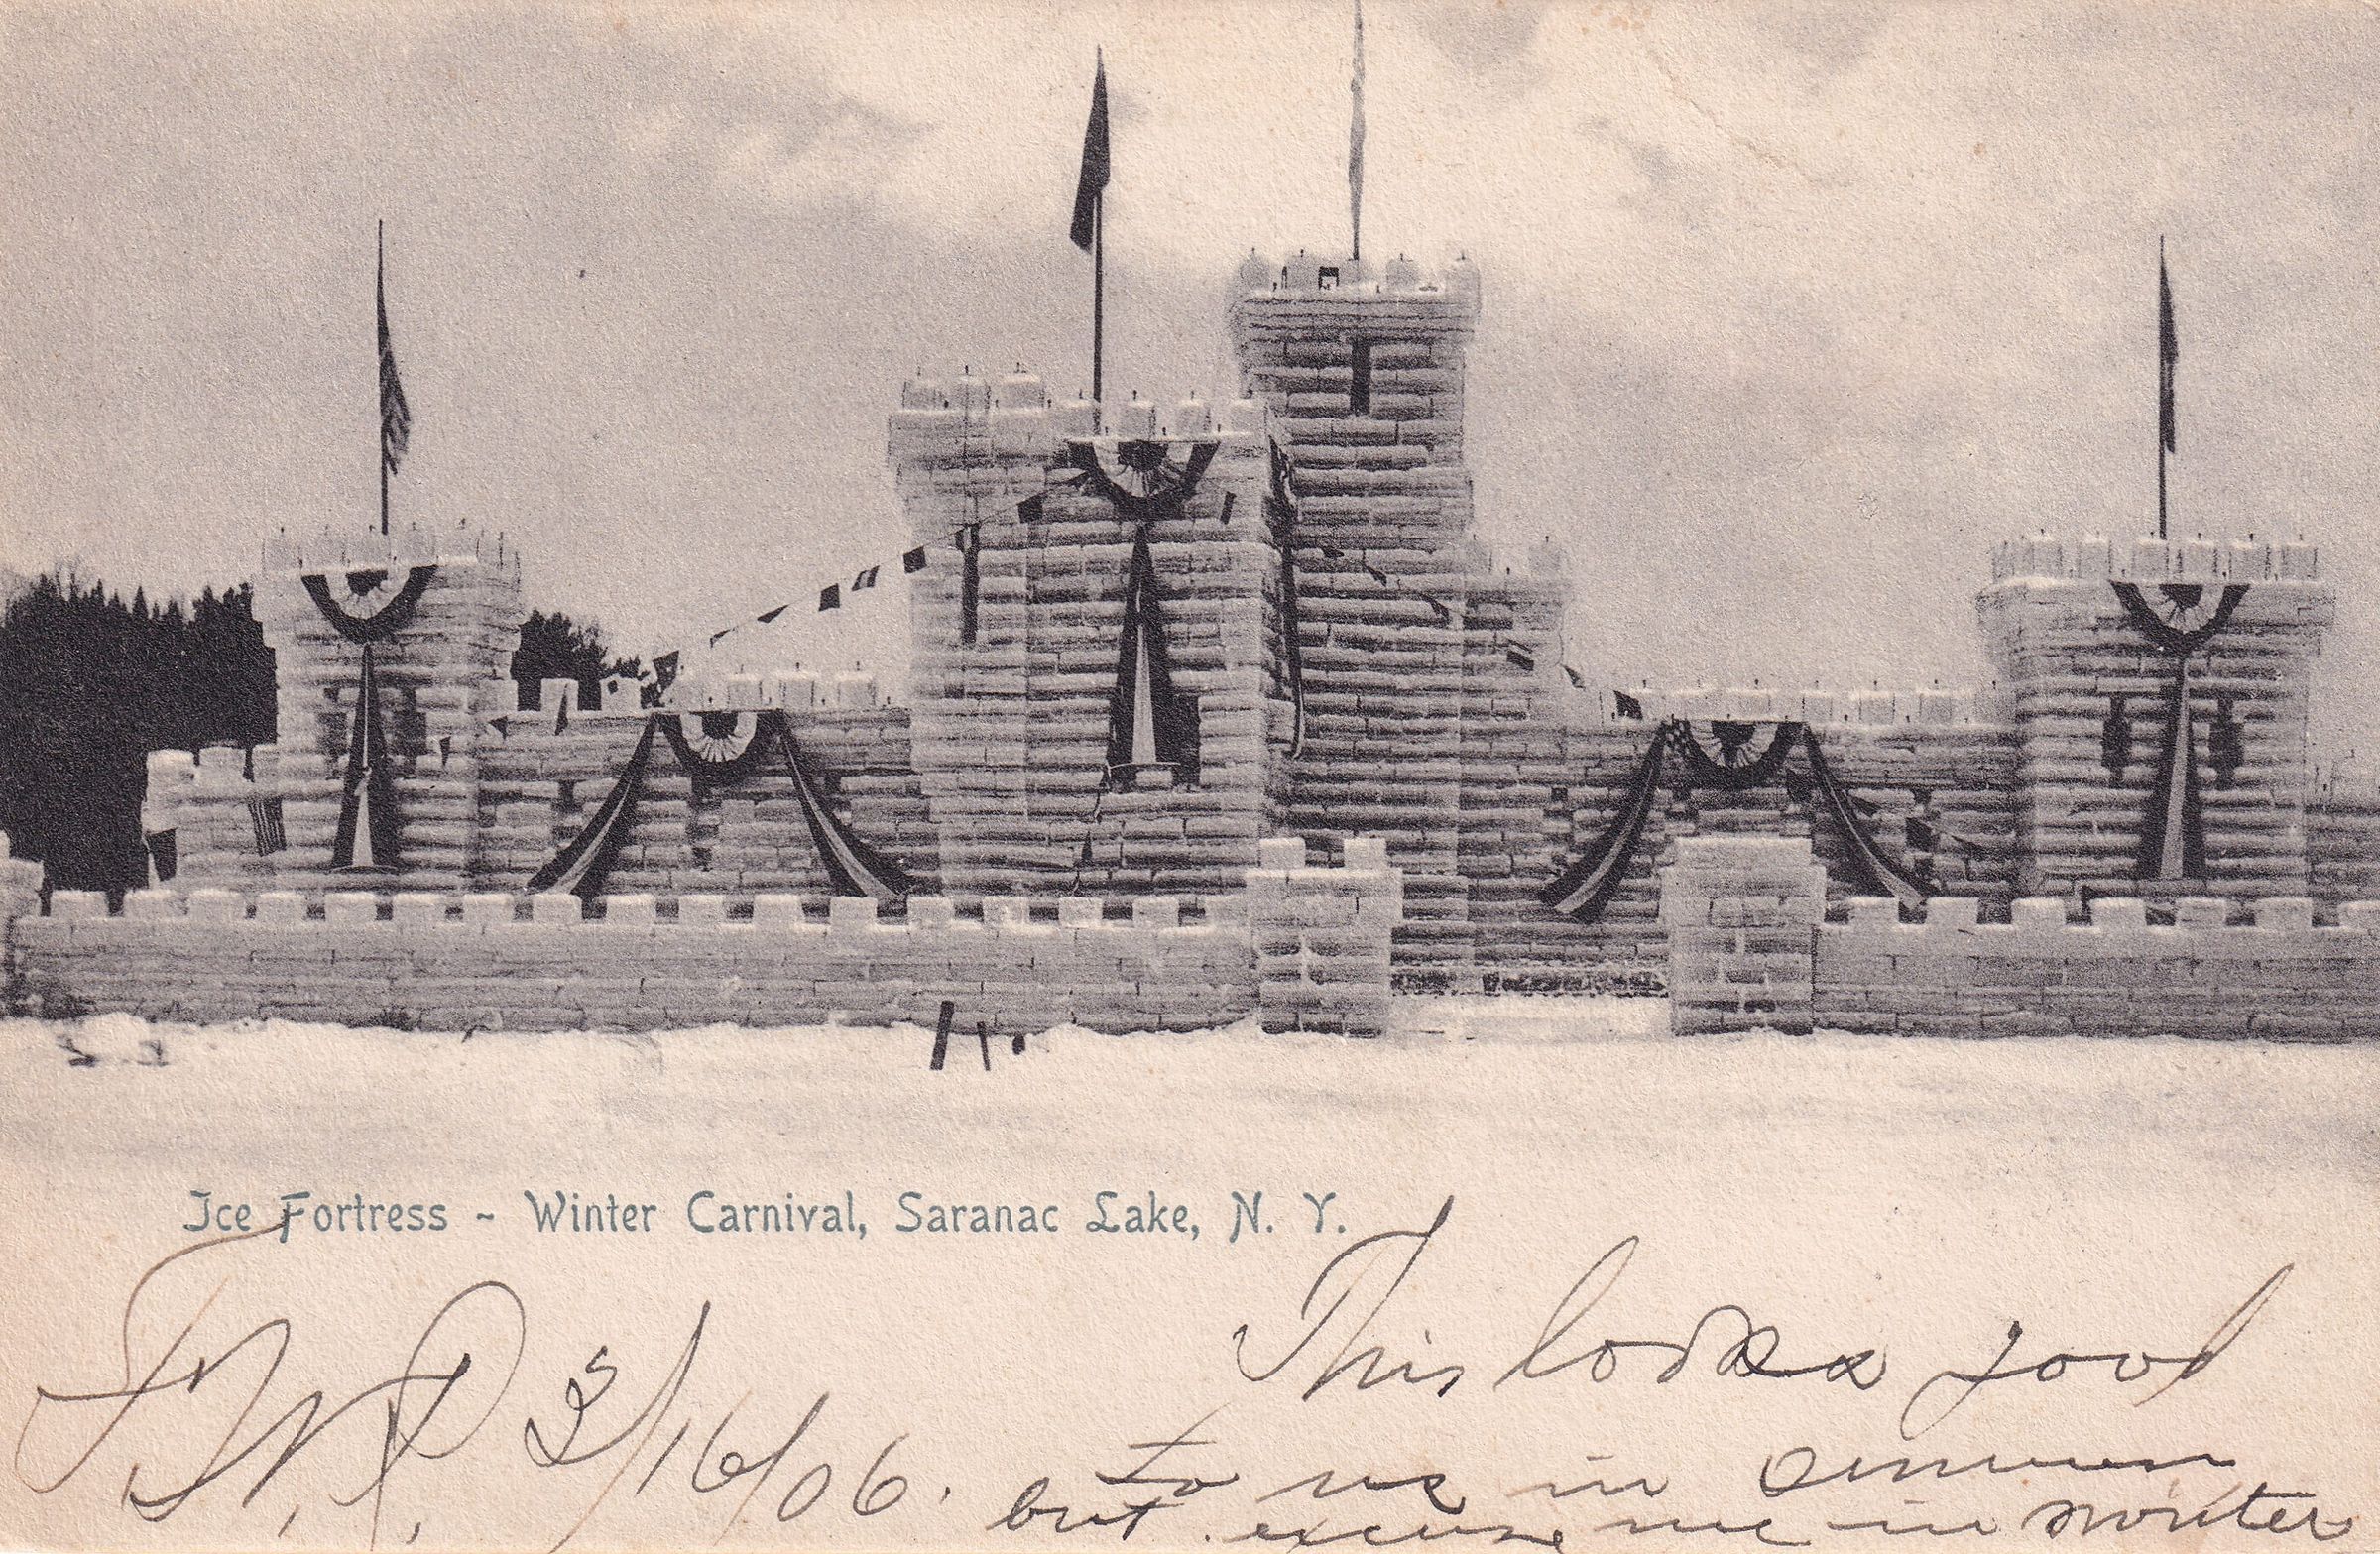 Ice Fortress ~ Winter Carnival, Saranac Lake, N. Y.
This looks good
/16/06.
to us in summer
but excuse me in winter